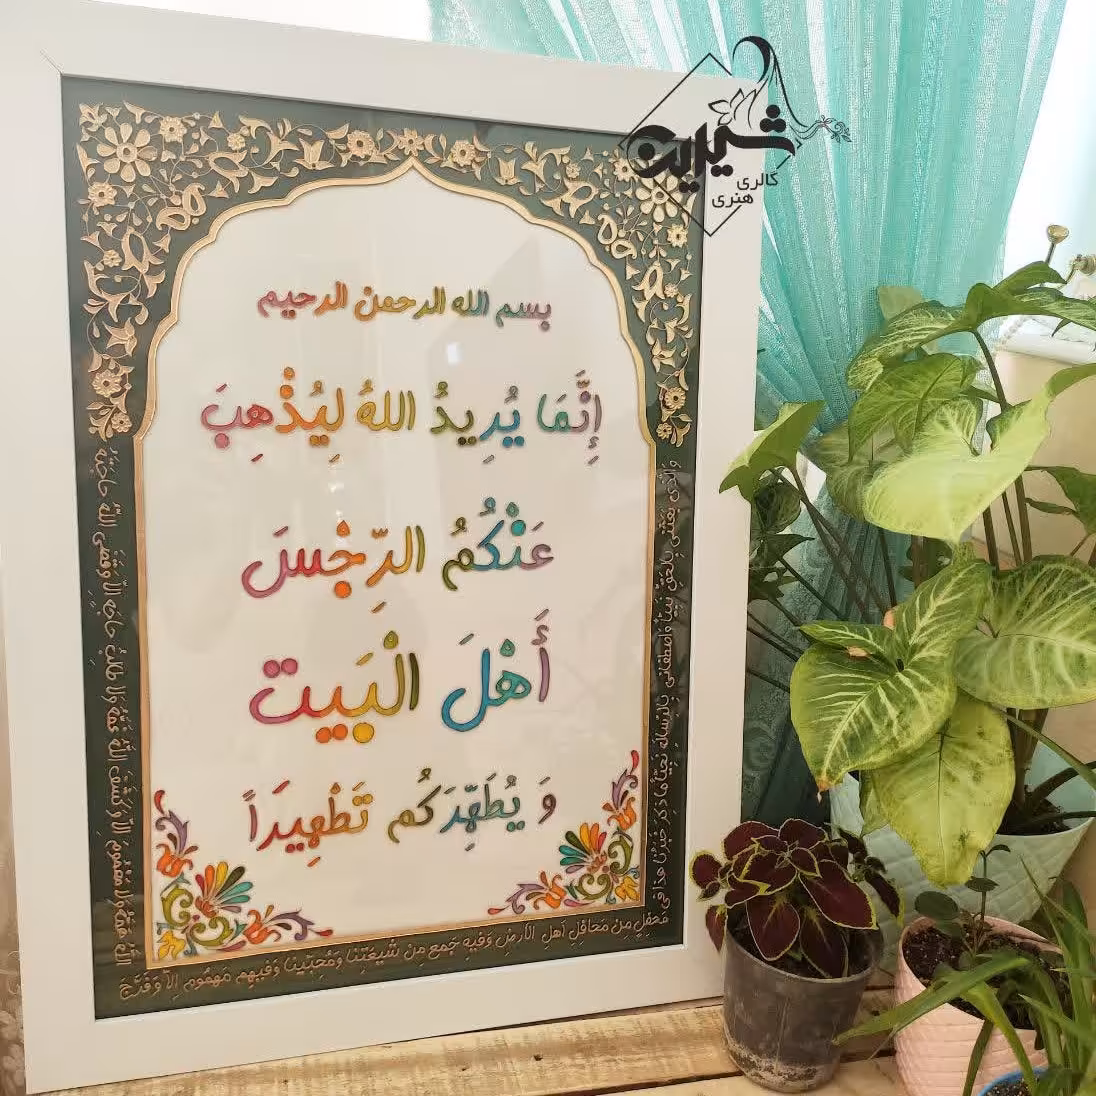 شیرین
گالری
هنری
بسم الله الرحمن الرحيم
إِنَّمَا يُرِيدُ اللهُ لِيُذْهِبَ
عَنْكُمُ الرِّجْسَ
أَهْلَ الْبَيت
وَ يُطَهِّرَكُم تَطْهِيرَاً
وَالَّذی بَعَثَنی بِالحَقِّ نَبِیّاً وَاصطَفانی بِالرِّسالَهِ نَجِیّاً ما ذُکِرَ خَبَرُنا هذا فی
مَحفِلٍ مِن مَحافِلِ اَهل الاَرضِ وَفیهِ جَمعٌ مِن شیعَتِنا وَمُحِبّینا وَفیهِم مَهمُومٌ اِلّا وَفَرَّجَ
اللّهُ هَمَّهُ وَلا مَغمُومٌ اِلّا وَکَشَفَ اللّهُ غَمَّهُ وَلا طالِبُ حاجَهٍ اِلّا وَقَضَی اللّهُ حاجَتَهُ